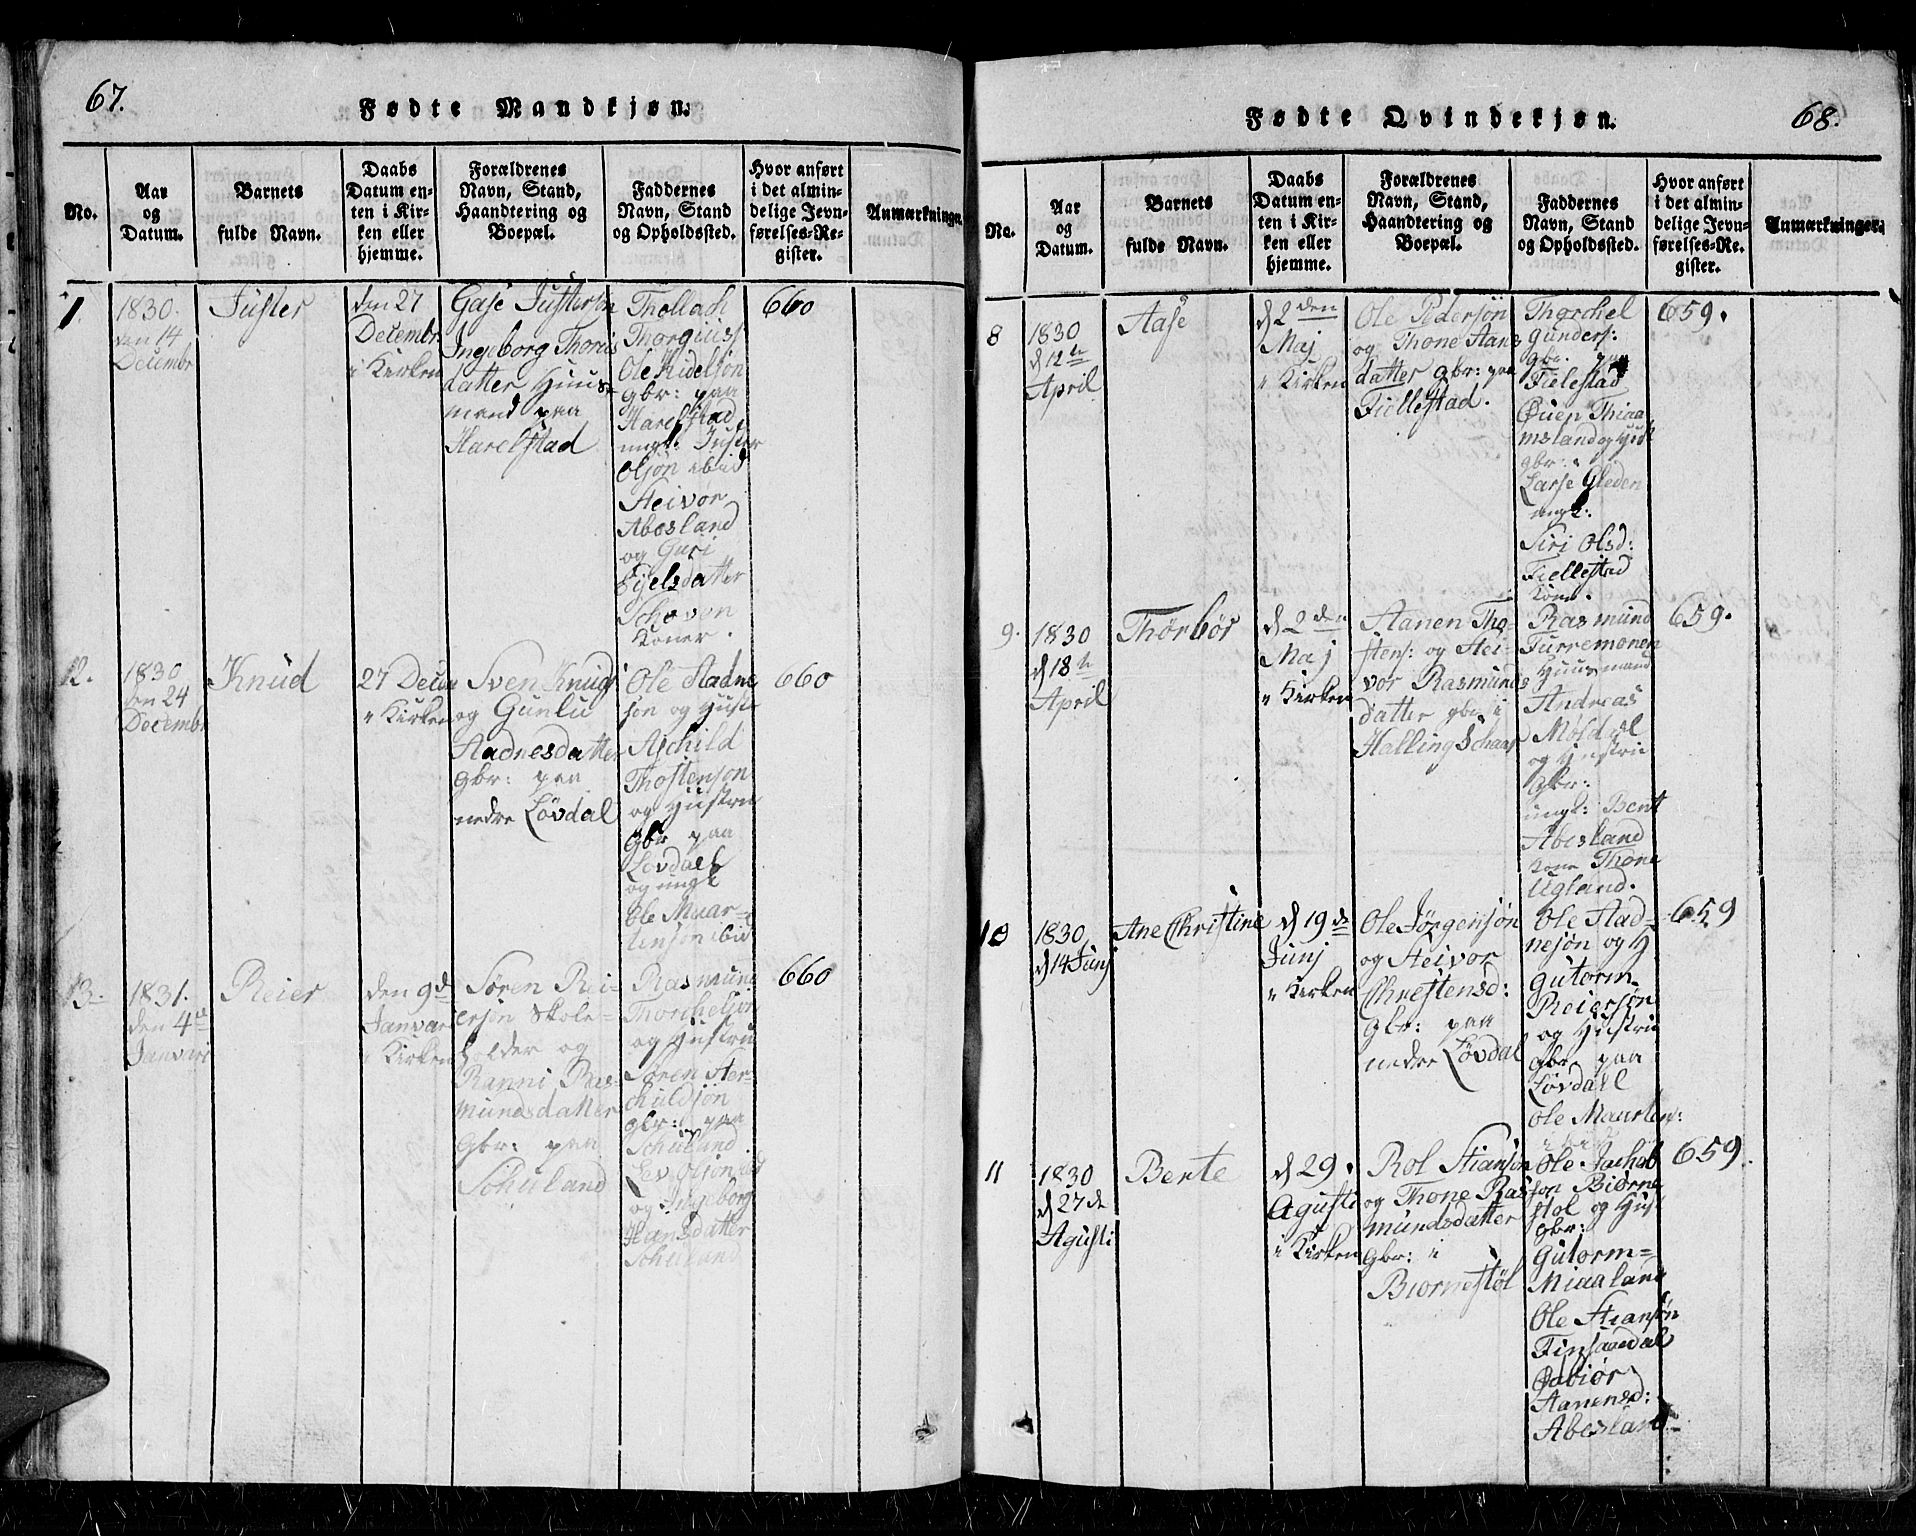 67.
Fødte Mandkjøn.
No.
Aar
og
Datum.
Barnets
fulde Navn.
Daabs
Datum en-
ten i Kir-
ken eller
hjemme.
Forældrenes
Navn, Stand,
Haandtering og
Boepæl.
Faddernes
Navn, Stand
og Opholdssted.
Hvor anført
i det almin-
delige Jevn-
førelses-Re-
gister.
Anmærkninge
1
1830.
den 14
Decembr
Juster
den 27
Decembr
i Kirken
Gase Justersøn
Ingeborg Thoris
datter Huus-
mand paa
Harelstad
Thollach
Thorgiuss
Ole Kidelsøn
gbr: paa
Harelstad
ungk: Juster
Olsøn ibid
Steivor
Abesland
og Guri
Eyelsdatter
Schoven
Koner.
660
12.
1830
den 24
Decembr
Knud
27 Decem
i Kirken
Sven Knuds
og Gunlu
Stadnesdatter
gbr: paa
nedre Løvdal
Ole Stadne
søn og Hust
Aschild
Thostenson
og Hustru
gbr paa
Lovdal
og ungk
Ole Maar-
tensøn ibid
660
13.
1831.
den 4de
Janvari
Reier
den 9d
Janvar
i Kirken
Søren Rei-
ersøn Skole-
holder og
Ranni Ras-
mundsdatter
gbr: paa
Schuland
Rasmund
Thorchelsøn
og Hustru
Søren Ter-
chuldsøn
gbr: paa
Schuland
Lev Olsøn ibid
og Ingeborg
Hansdatter
Schuland
660
68.
Fødte Qvindekjøn.
No.
Aar
og
Datum.
Barnets
fulde Navn.
Daabs
Datum en-
ten i Kir-
ken eller
hjemme.
Forældrenes
Navn, Stand,
Haandtering og
Boepæl.
Faddernes
Navn, Stand
og Opholdssted.
Hvor anført
i det almin-
delige Jevn-
førelses-Re-
gister.
Anmærkninger.
8
1830
d 12te
April
Aase
d 2den
Maj
i Kirken
Ole Pedersøn
og Thone Hans
datter gbr: paa
Fiellestad.
Thorchel
Gunders:
gbr. paa
Fielestad
Øuen Thiaa
msland og Hust
gbr:
Larse Gleden
ungk:
Siri Olsd:
Fiellestad
Kone.
659.
9.
1830
d 18te
April
Thorbor
d 2den
Maj
i Kirken
Aanen Tho-
stens: og Stei-
vor Rasmunds
datter gbr i
Halling Schaar
Rasmund
Furremonen
Huusmand
Andreas
Møldal
og Hustrue
Gbr:
ungk: Bent
Abesland
kone Thone
Ugland.
659.
10
1830
d 14 Junj
Ane Christine
d 19de
Junj
i Kirken
Ole Jørgensøn
og Steivor
Chrestensd:
Gbr: paa
nedre Løvdal
Ole Stad-
nesøn og H
Gutorm
Reiersøn
og Hustru
gbr. paa
Løvdall
Ole Maarten:
ibid
659
11
1830
d 27de
Agusti
Berte
d 29.
Agusti
i Kirken
Rol Stiansøn
og Thone Ras
mundsdatter
Gbr: i
Biornestøl
Ole Jachob
son Biørne
støl og Hus
gbr:
Gutorm
Miaaland
Ole Stiansøn
Finsaadal
Øabiør
Aanensd:
Abesland
659.